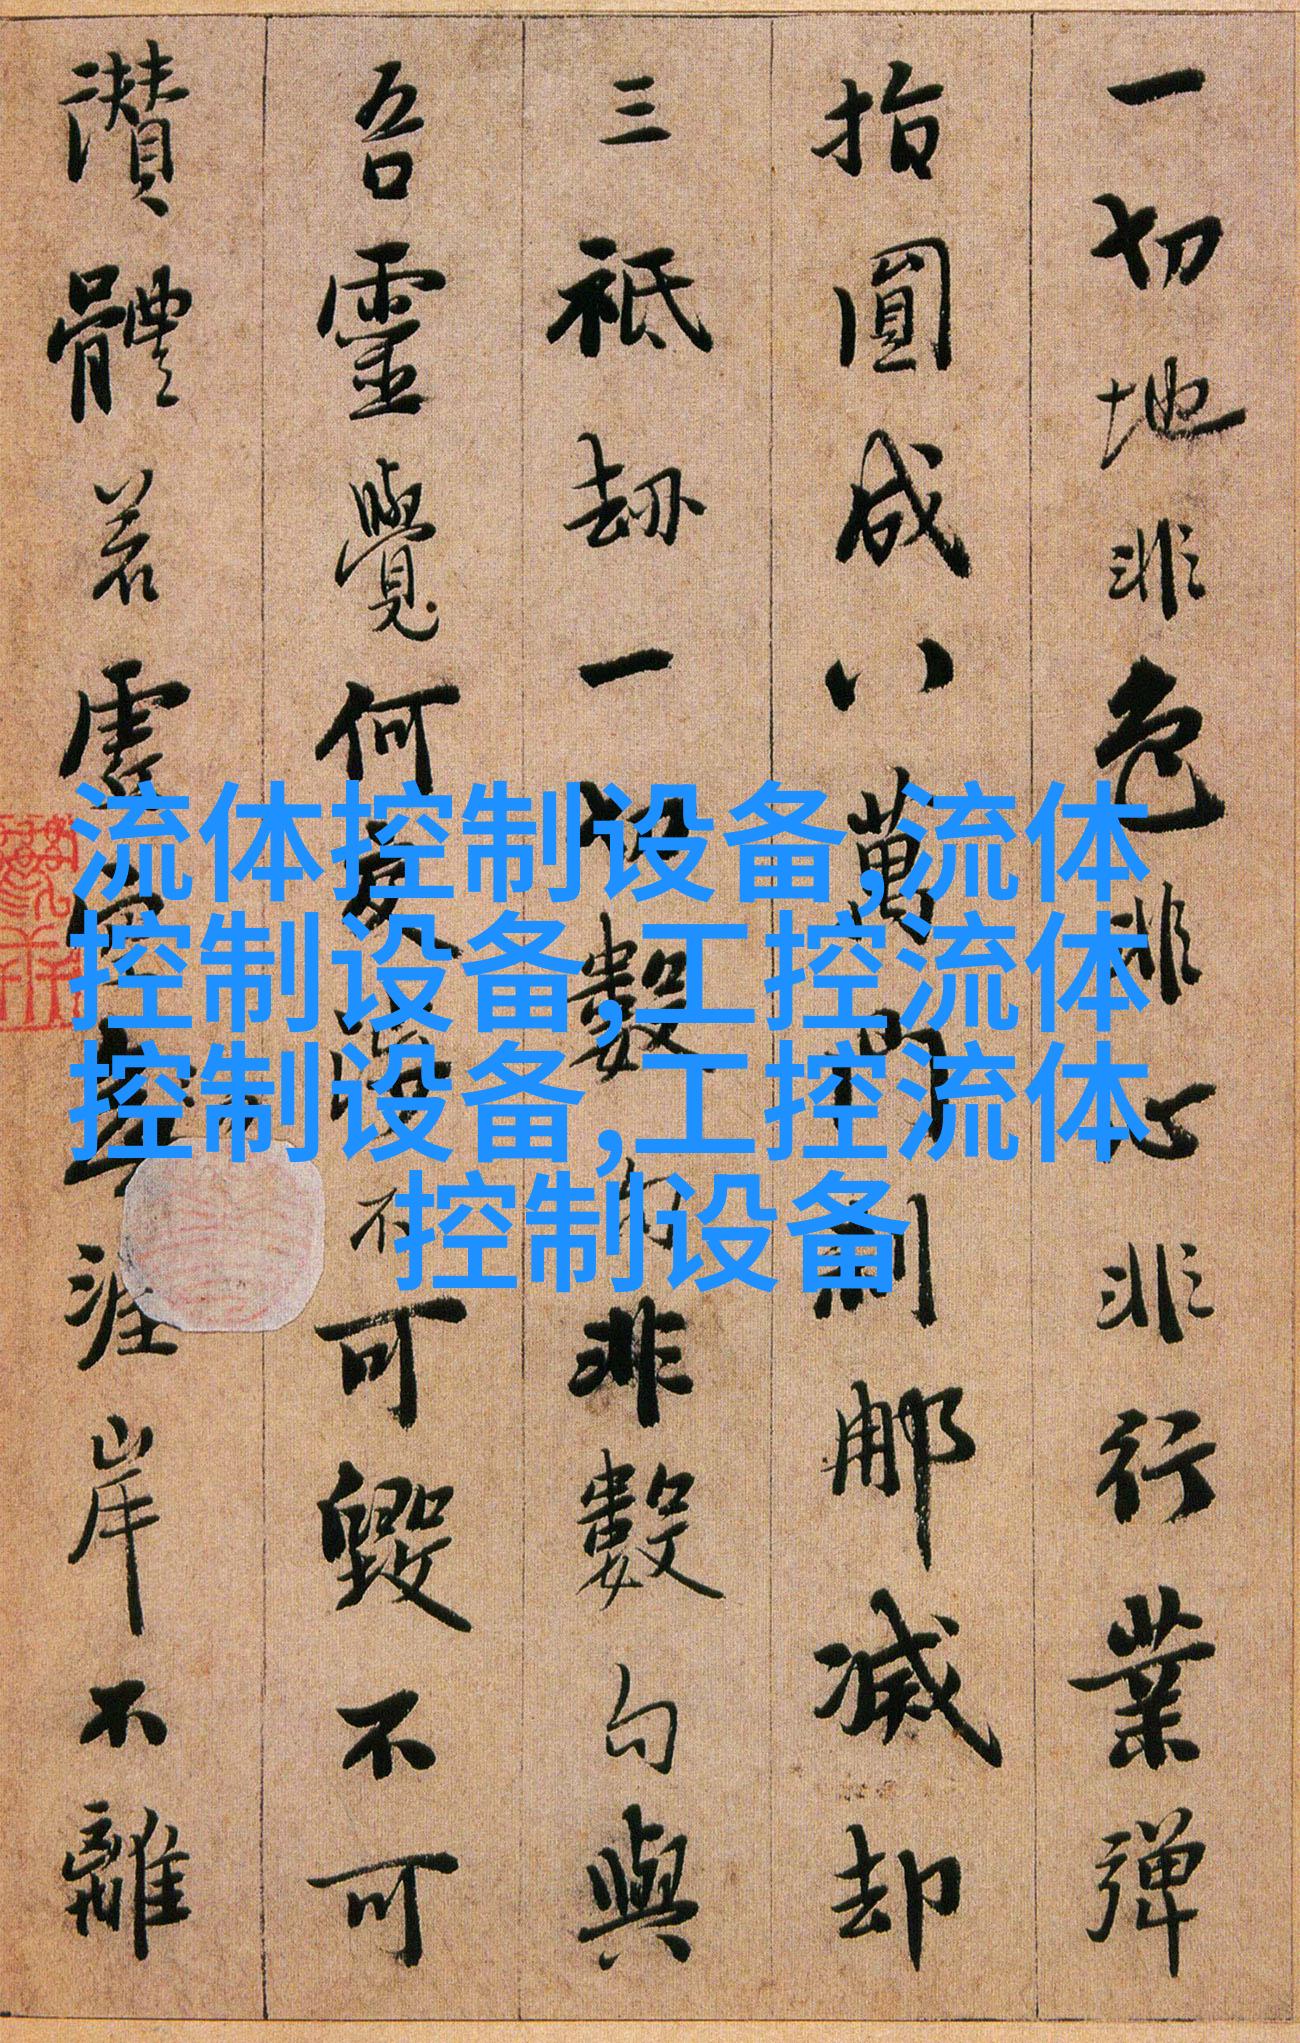 一切地非色非心非行業彈
指圓成八萬門刹那滅却
三祇劫一切數句非數句與
吾靈覺何交涉不可毀不可
讚體若虛空涯岸不離
流体控制设备,流体
控制设备,工控流体
控制设备,工控流体
控制设备